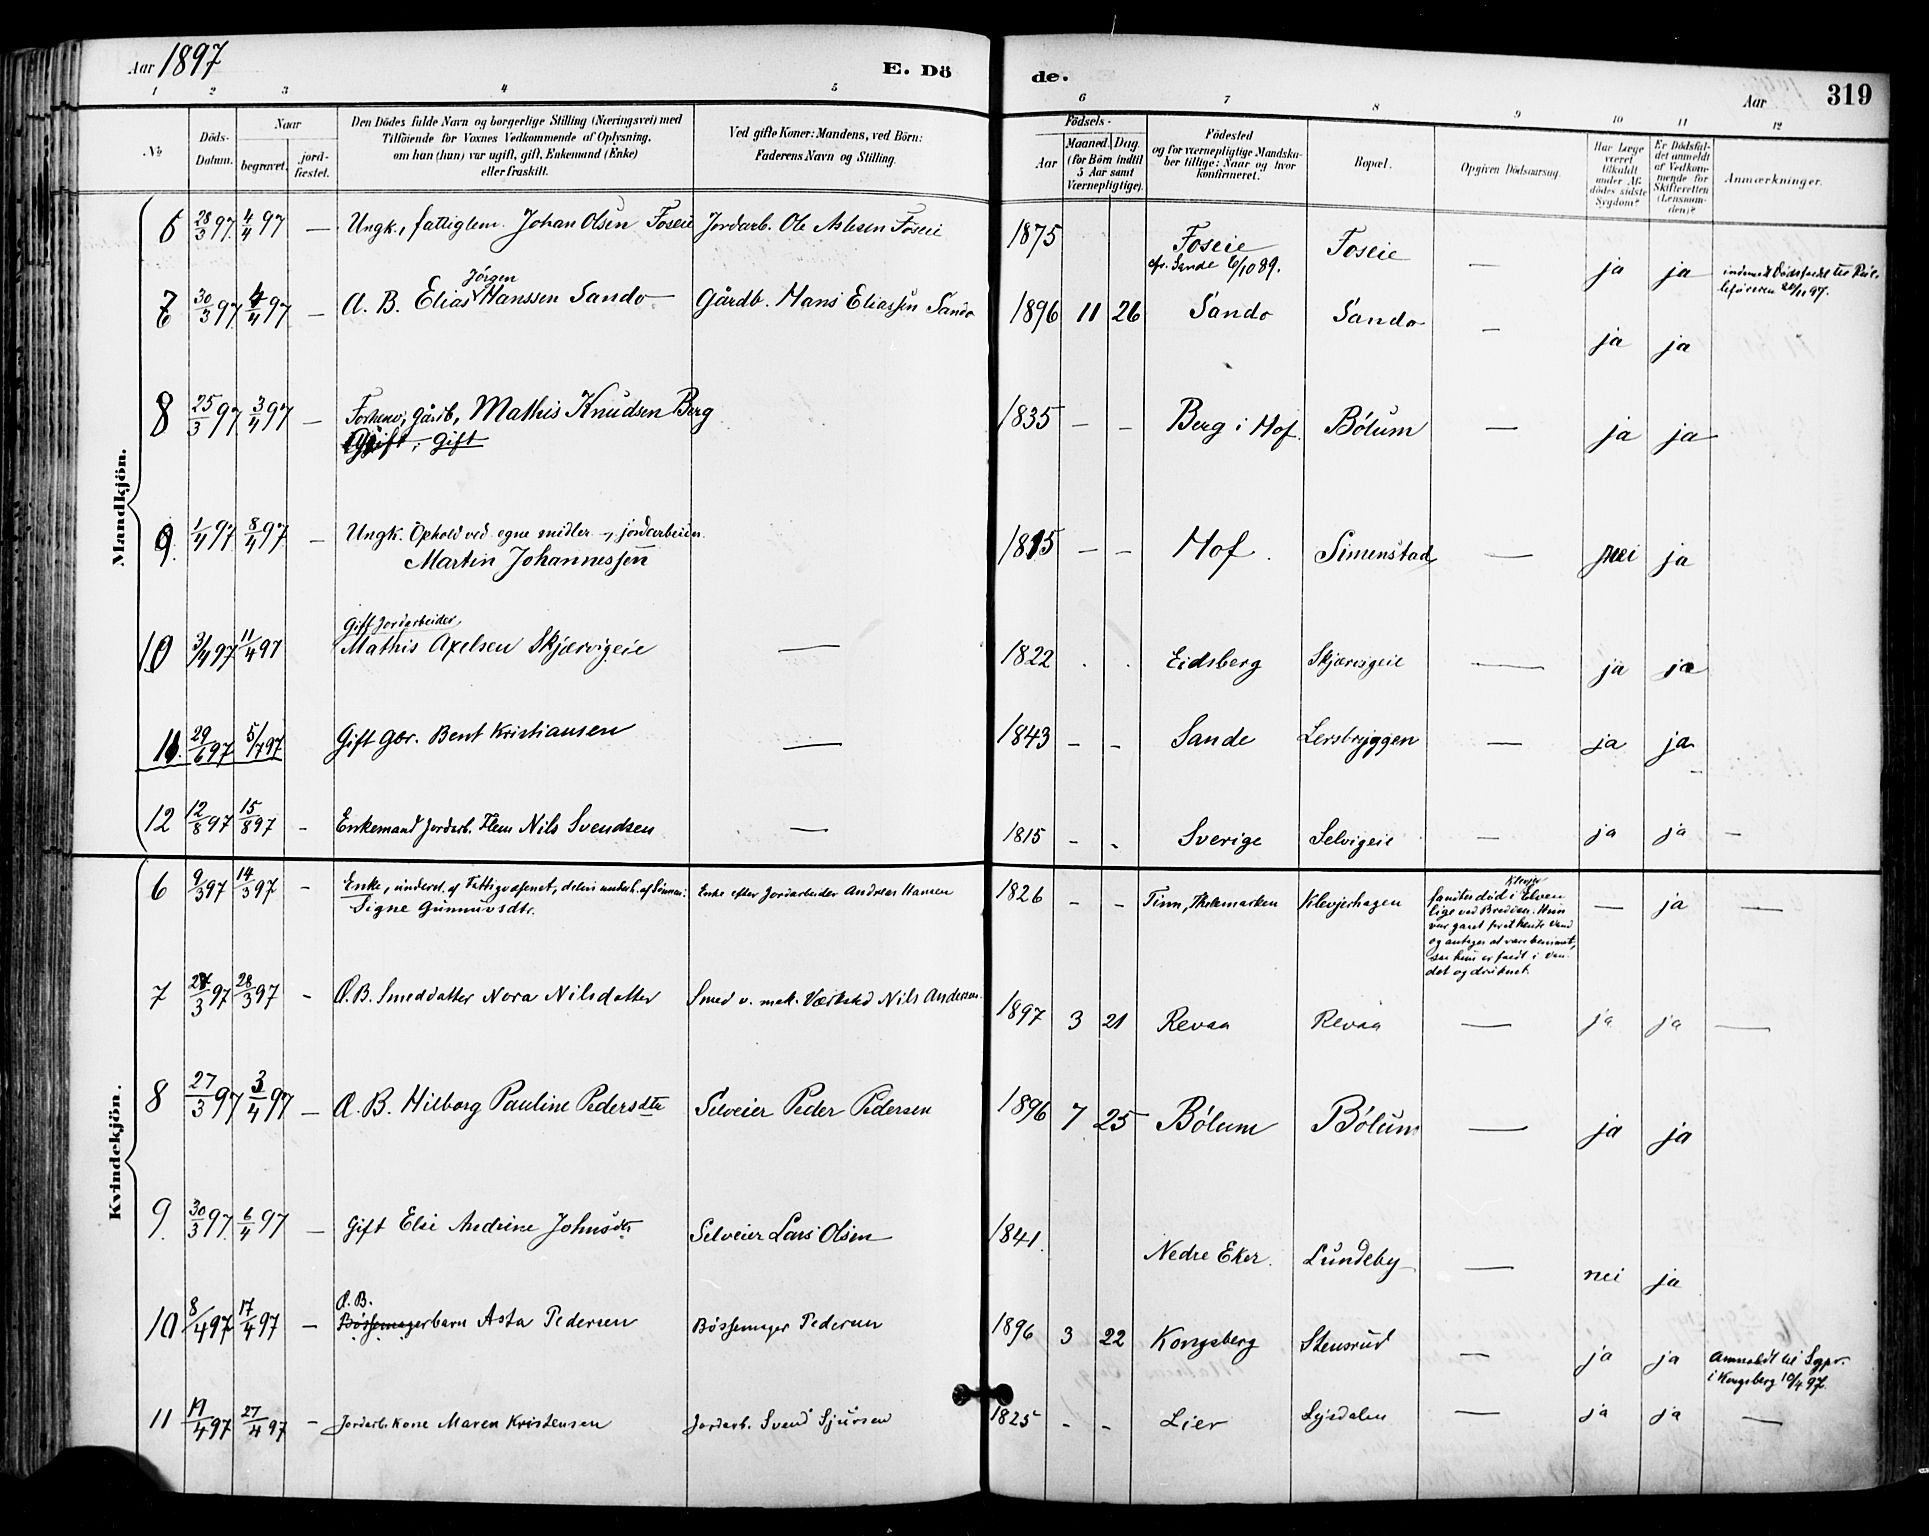 Aar 1897
E. Dö
de.
Aar
319
1 2 3 4 5 6 7 8 9 10 11 12
No
Döds-
Datum.
Naar
begravet.
jord-
fæstet.
Den Dödes fulde Navn og borgerlige Stilling (Næringsvei) med
Tilföiende for Voxnes Vedkommende af Oplysning,
om han (hun) var ugift, gift, Enkemand (Enke)
eller fraskilt.
Ved gifte Koner: Mandens, ved Börn:
Faderens Navn og Stilling.
Födsels-
Aar
Maaned. Dag.
(for Börn indtil
5 Aar samt
Værnepligtige).
Födested
og for værnepligtige Mandska-
ber tillige: Naar og hvor
konfirmeret.
Bopæl.
Opgiven Dödsaarsag.
Har Læge
været
tilkaldt
under Af-
dödes sidste
Sygdom?
Er Dödsfal-
det anmeldt
af Vedkom-
mende for
Skifteretten
(Lensman-
den)?
Anmærkninger.
Mandkjön.
6 28/3 97. 4/4 97 — Ungk., fattiglem Johan Olsen Foseie Jordarb. Ole Aslesen Foseie 1875 Foseie Foseie — ja ja
cfr. Sande 6/10 89.
Jörgen
7 30/3 97 4/4 97 — A. B. Elias Hanssen Sando Gårdb. Hans Eliassen Sando 1896 11 26 Sando Sando — ja ja
8 25/3 97 3/4 97 — Forhenv. Gårdb, Mathis Knudsen Berg 1835 — — Berg i Hof. Bölum — ja ja
Gift
9. 1/4 97 8/4 97 — Ungk. Ophold ved egne midler
Martin Johannessen — 1815 — — Hof. Simenstad — nei ja
Gift Jordarbeider,
10 3/4 97 11/4 97 Mathis Axelsen Skjærvigeie — 1822 . . Eidsberg Skjærvigeie — ja ja
11. 29/6 97 5/7 97 Gift Gbr. Bent Kristiansen — 1843 — — Sande Lersbryggen — ja ja
12 12/8 97 15/8 97 — Enkemand Jordarb. Flem Nils Svendsen — 1815 — — Sverige Selvigeie — ja ja —
Kvindekjön.
6 9/3 97 14/3 97 — Enke, underst. af Fattigvæsenet, delvi underh. af Sönnen: Enke efter Jordarbeider Andreas Hansen 1826 — — Tinn, Thelemarken Klevjerhagen — ja —
Signe Gunnuvsdtr.
fandtes död i Elven
lige ved Bredden. Hun
var gaaet for at hente Vand
og antages at være besvimet,
saa hun er faldt i Van-
det og druknet.
7 27/3 97 28/3 97 — A. B. Smeddatter Nora Nilsdatter Smed v. mek. Værksted Nils Andersen. 1897 3 21 Revaa Revaa — ja ja —
8 27/3 97 3/4 97 — A. B. Hilborg Pauline Pedersdtr Selveier Peder Pedersen 1896 7 25 Bölum Bölum — ja ja
9. 30/3 97. 6/4 97 — Gift Else Andrine Johnsdtr Selveier Lars Olsen 1841. Nedre Eker. Lundeby — nei ja
A. B.
10 8/4 97 17/4 97 — Bössemagerbarn Asta Pedersen Bössemager Pedersen 1896 3 22 Kongsberg Stensrud — ja ja Anmeldt til Sgpr.
i Kongsberg 10/4 97.
11 19/4 97 27/4 97 — Jordarb. kone Maren Kristensen Jordarb. Svend Sjursen 1825 — — Lier Sysdalen — ja ja —